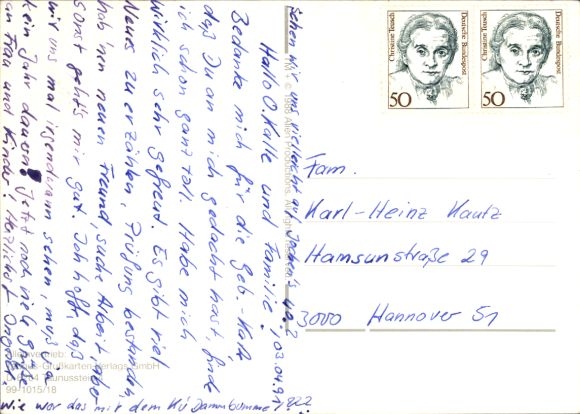 Christine Teusch
Deutsche Bundespost
50
Christine Teusch
Deutsche Bundespost
50
1,03.04.91
Hallo O, Kalle und Familie!
Bedanke mich für die Geb.-Karte,
daß Du an mich gedacht hast, finde
ich schon ganz toll. Habe mich
wirklich sehr gefreut. Es gibt viel
Neues zu erzählen, Prüfung bestanden,
hab nen neuen Freund, suche Arbeit, aber
sonst geht's mir gut. Ich hoffe, daß
wir uns mal irgendwann sehen, muß ja
kein Jahr dauern! Jetzt noch viele Grüße
an Frau und Kinder! Herzlichst
Sehen wir uns vielleicht auf 40.?
wie war das mit dem ?
Fam.
Karl-Heinz Kautz
Hamsunstraße 29
3000 Hannover 51
© 1989 Alien Productions. All rights
Alleinvertrieb:
-Grußkarten-Verlags GmbH
Taunusstein
99-1015/18